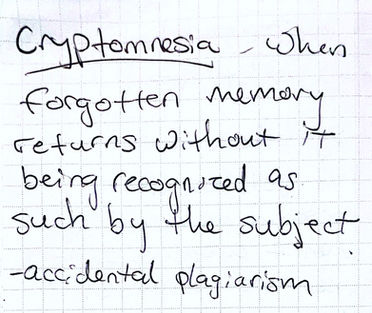 Cryptomnesia - when
forgotten memory
returns without it
being recognized as
such by the subject.
-accidental plagiarism